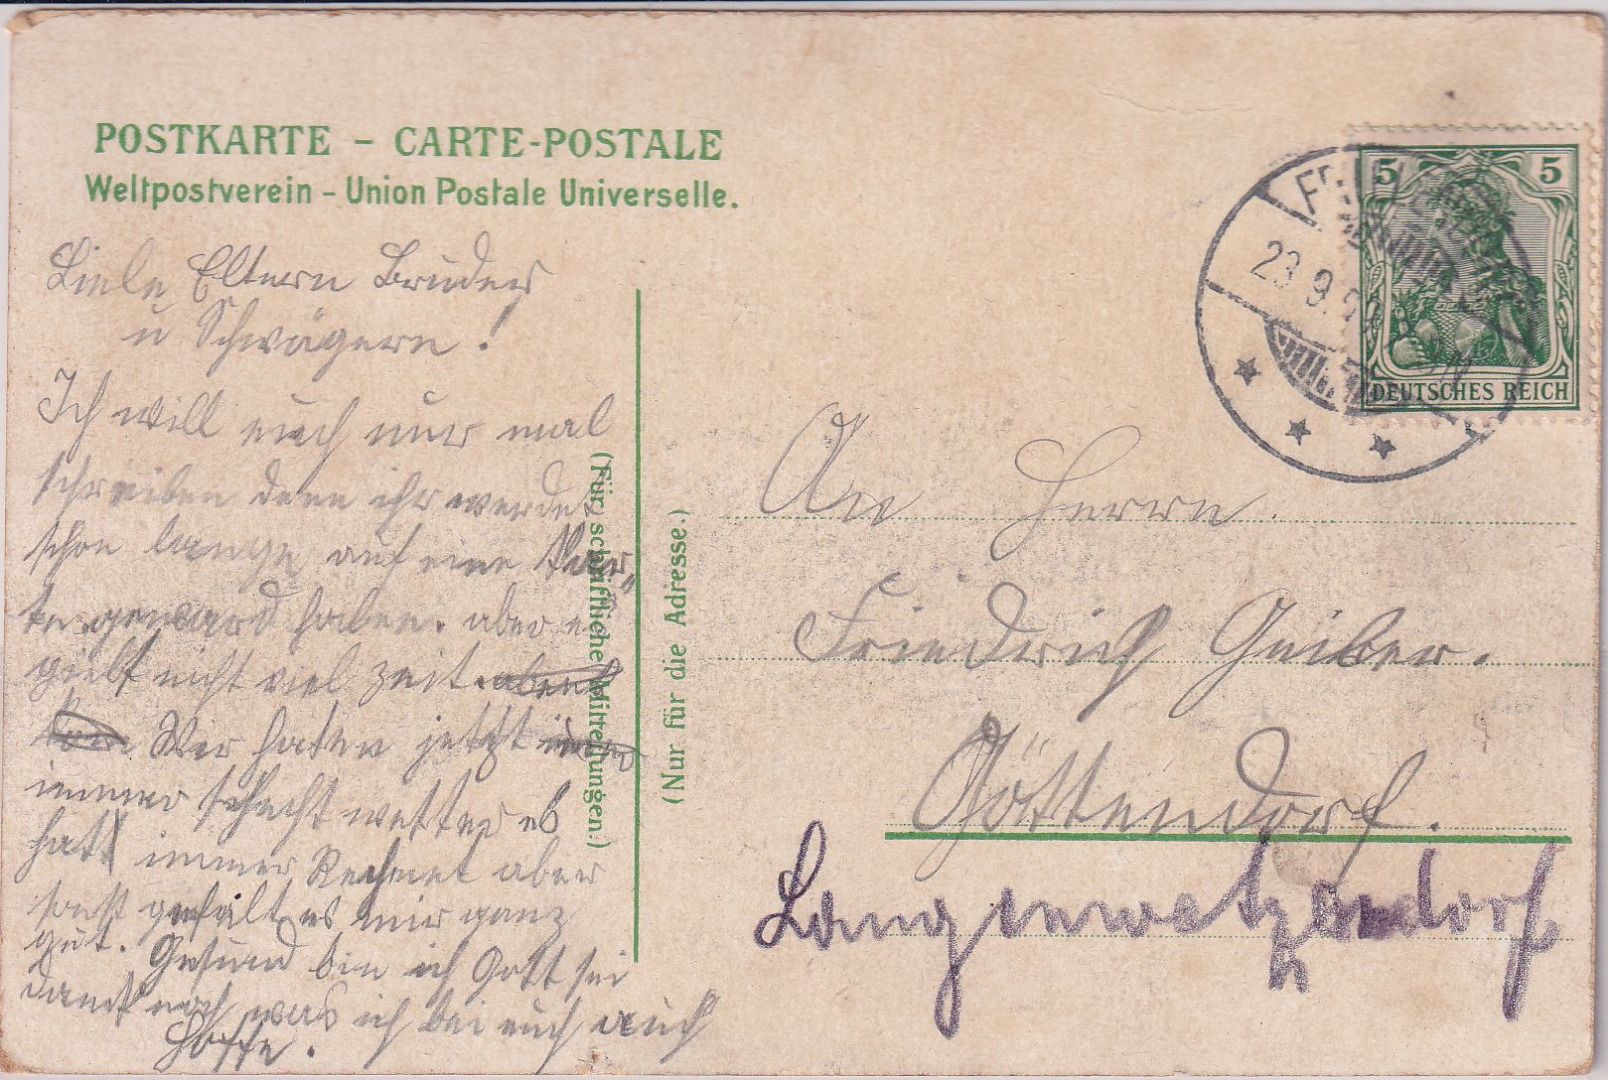 POSTKARTE – CARTE-POSTALE
Weltpostverein – Union Postale Universelle.
Liebe Eltern Bruder
u Schwägern!
Ich will euch nur mal
schreiben denn ihr werdet
schon lange auf eine Kar„
te geward haben. aber es
giebt nicht viel Zeit
Wir haten jetzt
immer schlecht wetter es
hatt immer Rechnet aber
sonst gefält es mir ganz
gut. Gesund bin ich Gott sei
dank noch was ich bei euch auch
Hoffe.
(Für schriftliche Mitteilungen.)
(Nur für die Adresse.)
5 5
DEUTSCHES REICH
23 9.
An Herrn.
Friedrich Geiber.
Göttendorf.
Langenwetzendorf